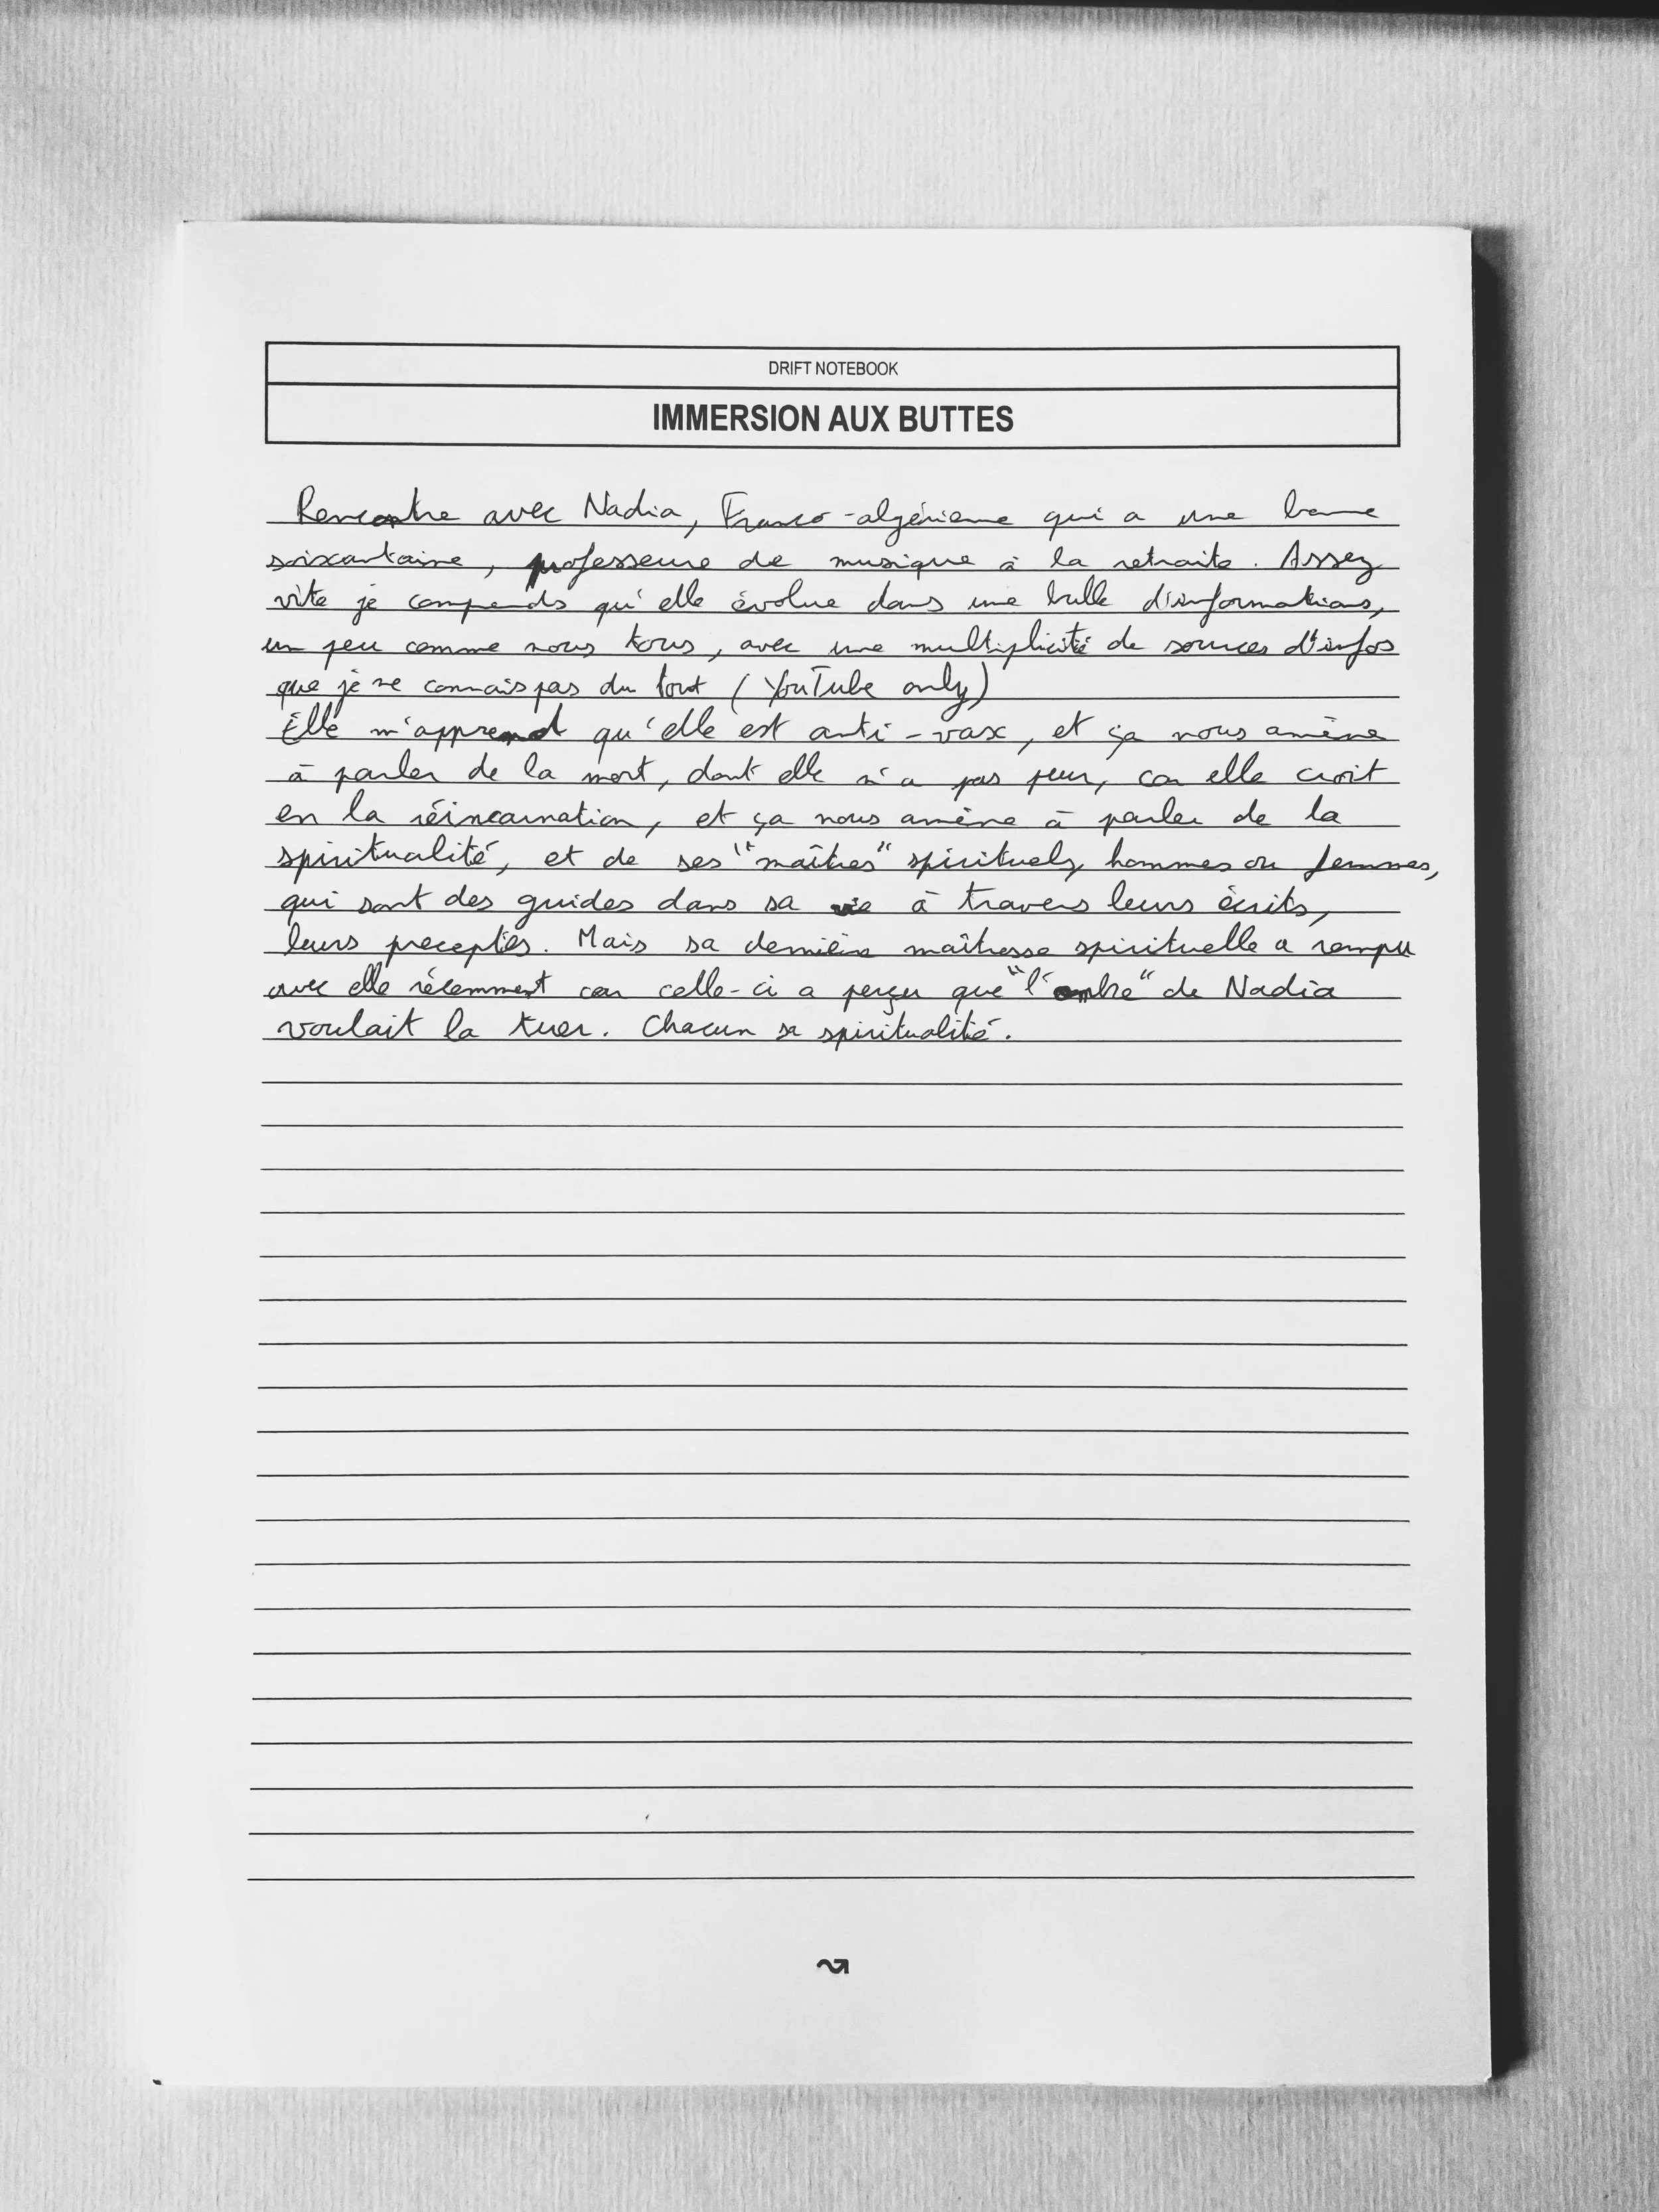 DRIFT NOTEBOOK
IMMERSION AUX BUTTES
Rencontre avec Nadia, Franco-algérienne qui a une bonne
soixantaine, professeure de musique à la retraite. Assez
vite je comprends qu'elle évolue dans une bulle d'informations,
un peu comme nous tous, avec une multiplicité de sources d'infos
que je ne connais pas du tout (YouTube only)
Elle m'apprend qu'elle est anti-vax, et ça nous amène
à parler de la mort, dont elle n'a pas peur, car elle croit
en la réincarnation, et ça nous amène à parler de la
spiritualité, et de ses "maîtres" spirituels, hommes ou femmes,
qui sont des guides dans sa vie à travers leurs écrits,
leurs preceptes. Mais sa dernière maîtresse spirituelle a rompu
avec elle récemment car celle-ci a perçu que "l'ombre" de Nadia
voulait la tuer. Chacun sa spiritualité.